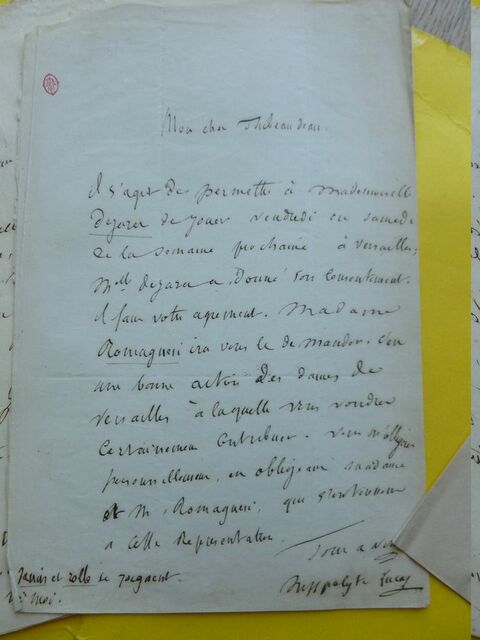 Mon cher Thibeaudeau.
il s'agit de permettre à Mademoiselle
Dejazet de jouer vendredi ou samedi
de la semaine prochaine à Versailles,
Mlle dejazet a Donné son consentement.
il faut votre agrément. Madame
Romagnesi ira vous le demander. C'est
une bonne action des dames de
Versailles à laquelle vous voudrez
certainement contribuer. vous m'obligerez
personnellement, en obligeant madame
et Mr Romagnesi, que s'intéressent
a cette Représentation.
Tout a vous
hippolyte Lucas
Janin et rolle se joignent
à moi.